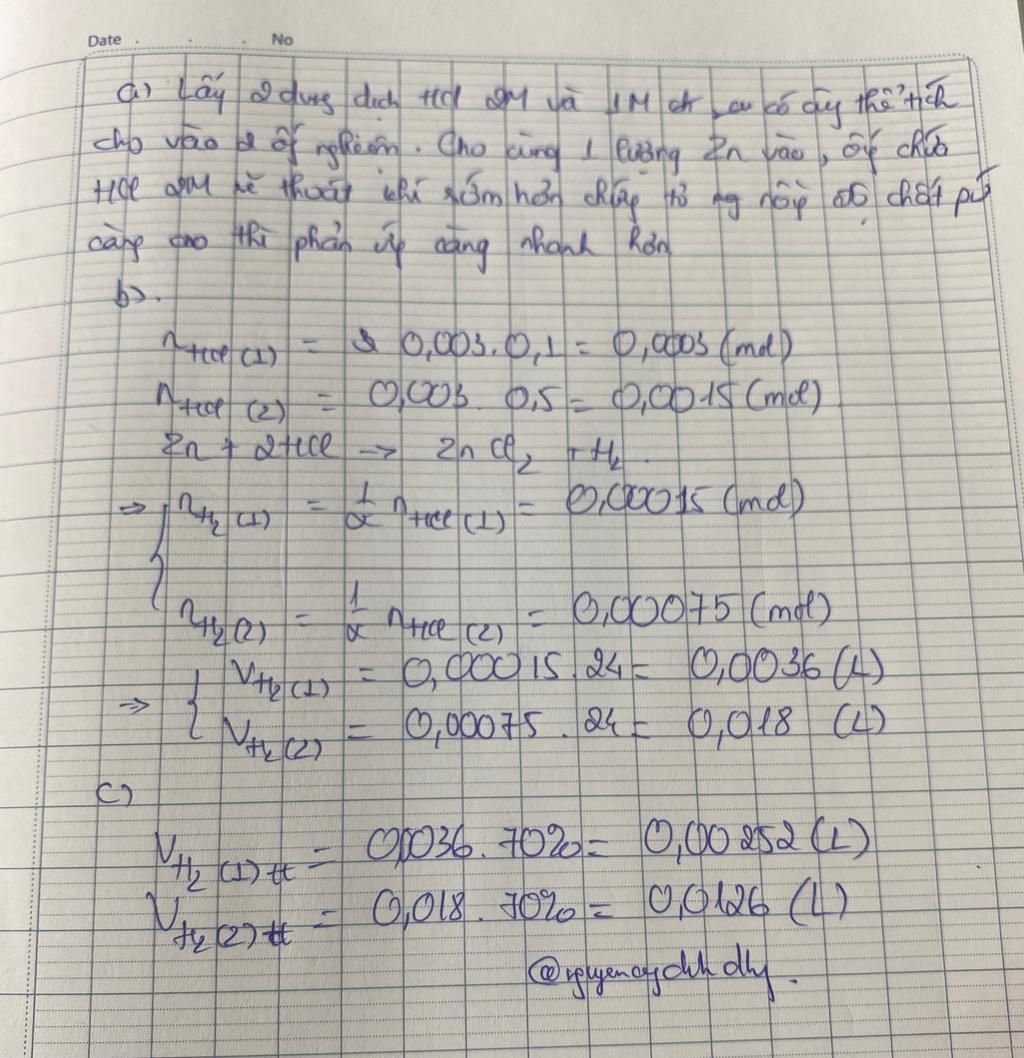 Date . . . No
a) Lấy 2 dung dịch HCl 2M và 1M có cùng thể tích
cho vào 2 ống nghiệm. Cho cùng 1 lượng Zn vào, ống chứa
HCl 2M sẽ thoát khí sớm hơn chứng tỏ ng nồng độ chất pứ
càng cao thì phản ứng càng nhanh hơn
b).
nHCl (1) = 0,003. 0,1 = 0,0003 (mol)
nHCl (2) = 0,003. 0,5 = 0,0015 (mol)
Zn + 2HCl → ZnCl₂ + H₂
⇒ nH₂ (1) = 1/2 nHCl (1) = 0,00015 (mol)
nH₂ (2) = 1/2 nHCl (2) = 0,00075 (mol)
⇒ VH₂ (1) = 0,00015. 24 = 0,0036 (L)
VH₂ (2) = 0,00075. 24 = 0,018 (L)
c)
VH₂ (1) tt = 0,0036. 70% = 0,00252 (L)
VH₂ (2) tt = 0,018. 70% = 0,0126 (L)